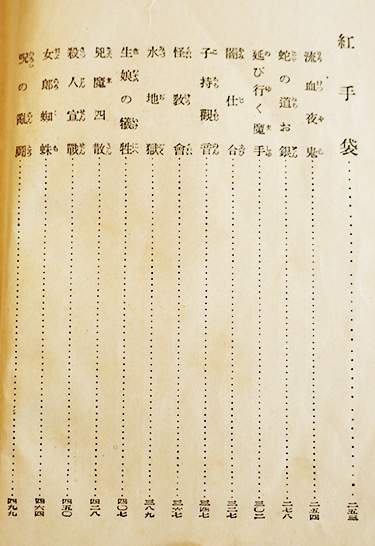 紅手袋……二五三
流血夜鬼……二五四
蛇の道お銀……二七八
延び行く魔手……三〇二
闇仕合……三二七
子持觀音……三四七
怪敎會……三六七
水地獄……三八九
生娘の犧牲……四〇七
兇魔四散……四二八
殺人宣戰……四五〇
女郎蜘蛛……四六四
呪の亂鬪……四九九